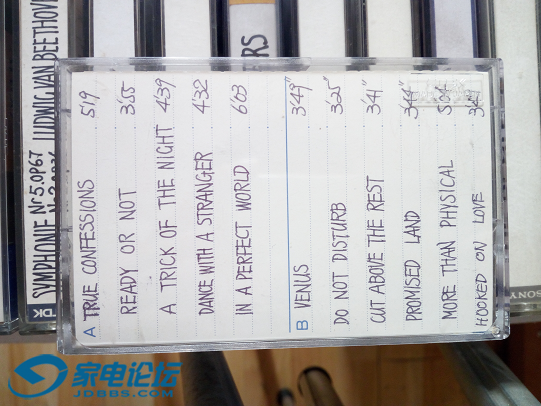 SYMPHONIE Nr5.OP67
LUDWIG VAN BEETHOV
DK
ERS
A TRUE CONFESSIONS 5'19
READY OR NOT 3'55
A TRICK OF THE NIGHT 4'39
DANCE WITH A STRANGER 4'32
IN A PERFECT WORLD 6'03
B VENUS 3'49"
DO NOT DISTURB 3'25"
CUT ABOVE THE REST 3'41"
PROMISED LAND 3'44"
MORE THAN PHYSICAL 5'04"
HOOKED ON LOVE
SONY
家电论坛
JDBBS.COM